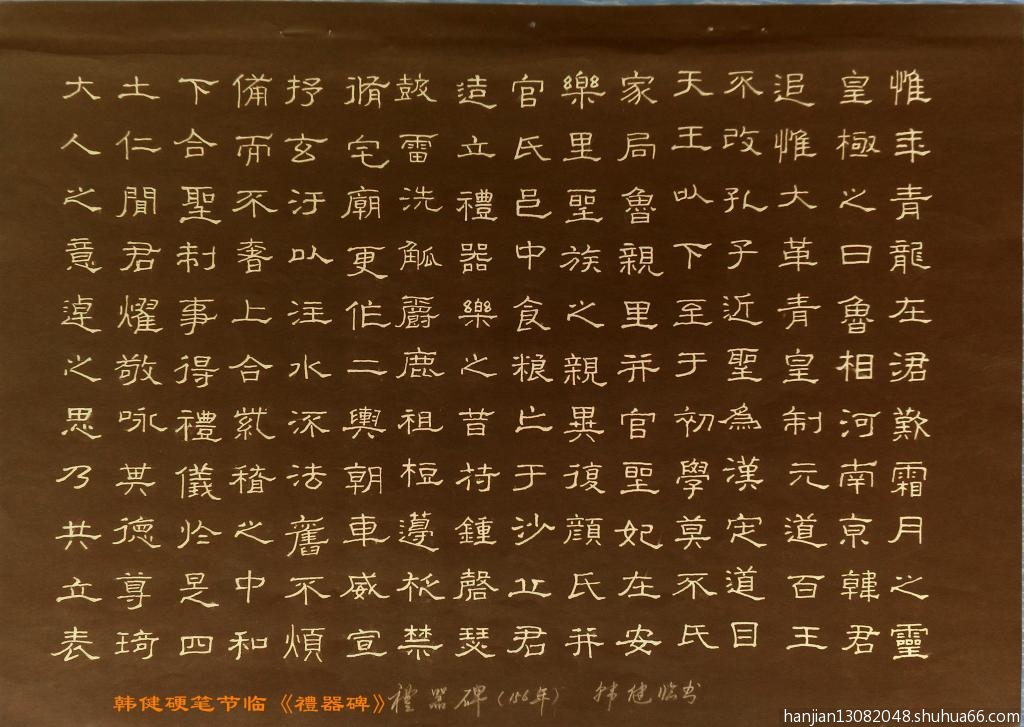 惟年青龍在涒歎霜月之靈
皇極之日魯相河南京韓君
追惟大革青皇制元道百王
不改孔子近聖為漢定道目
天王以下至于初學莫不氏
家局魯親里并官聖妃在安
樂里聖族之親異復顏氏并
官氏邑中食粮亡于沙丘君
造立禮器樂之昔持鍾磬瑟
鼓雷洗觚爵鹿祖梪籩柉禁
脩宅廟更作二輿朝車威宣
抒玄汙以注水流法舊不煩
備而不奢上合紫稽之中和
下合聖制事得禮儀於是四
土仁聞君燿敬咏其德尊琦
大人之意逴之思乃共立表
禮器碑（156年） 韩健临书
韩健硬笔节临《禮器碑》
hanjian13082048.shuhua66.com